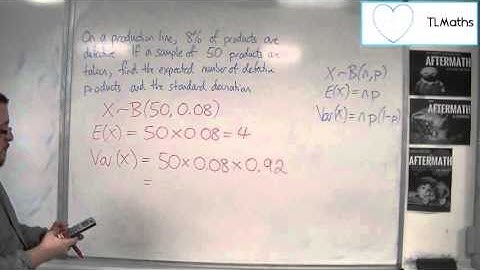 On a production line, 8% of products are
defective. If a sample of 50 products are
taken, find the expected number of defective
products and the standard deviation.
X~B(50, 0.08)
E(X) = 50×0.08 = 4
Var(X) = 50×0.08×0.92
=
X~B(n,p)
E(X)=np
Var(X)=np(1-p)
TLMaths
AFTERMATH
AFTERMATH
AFTERMATH